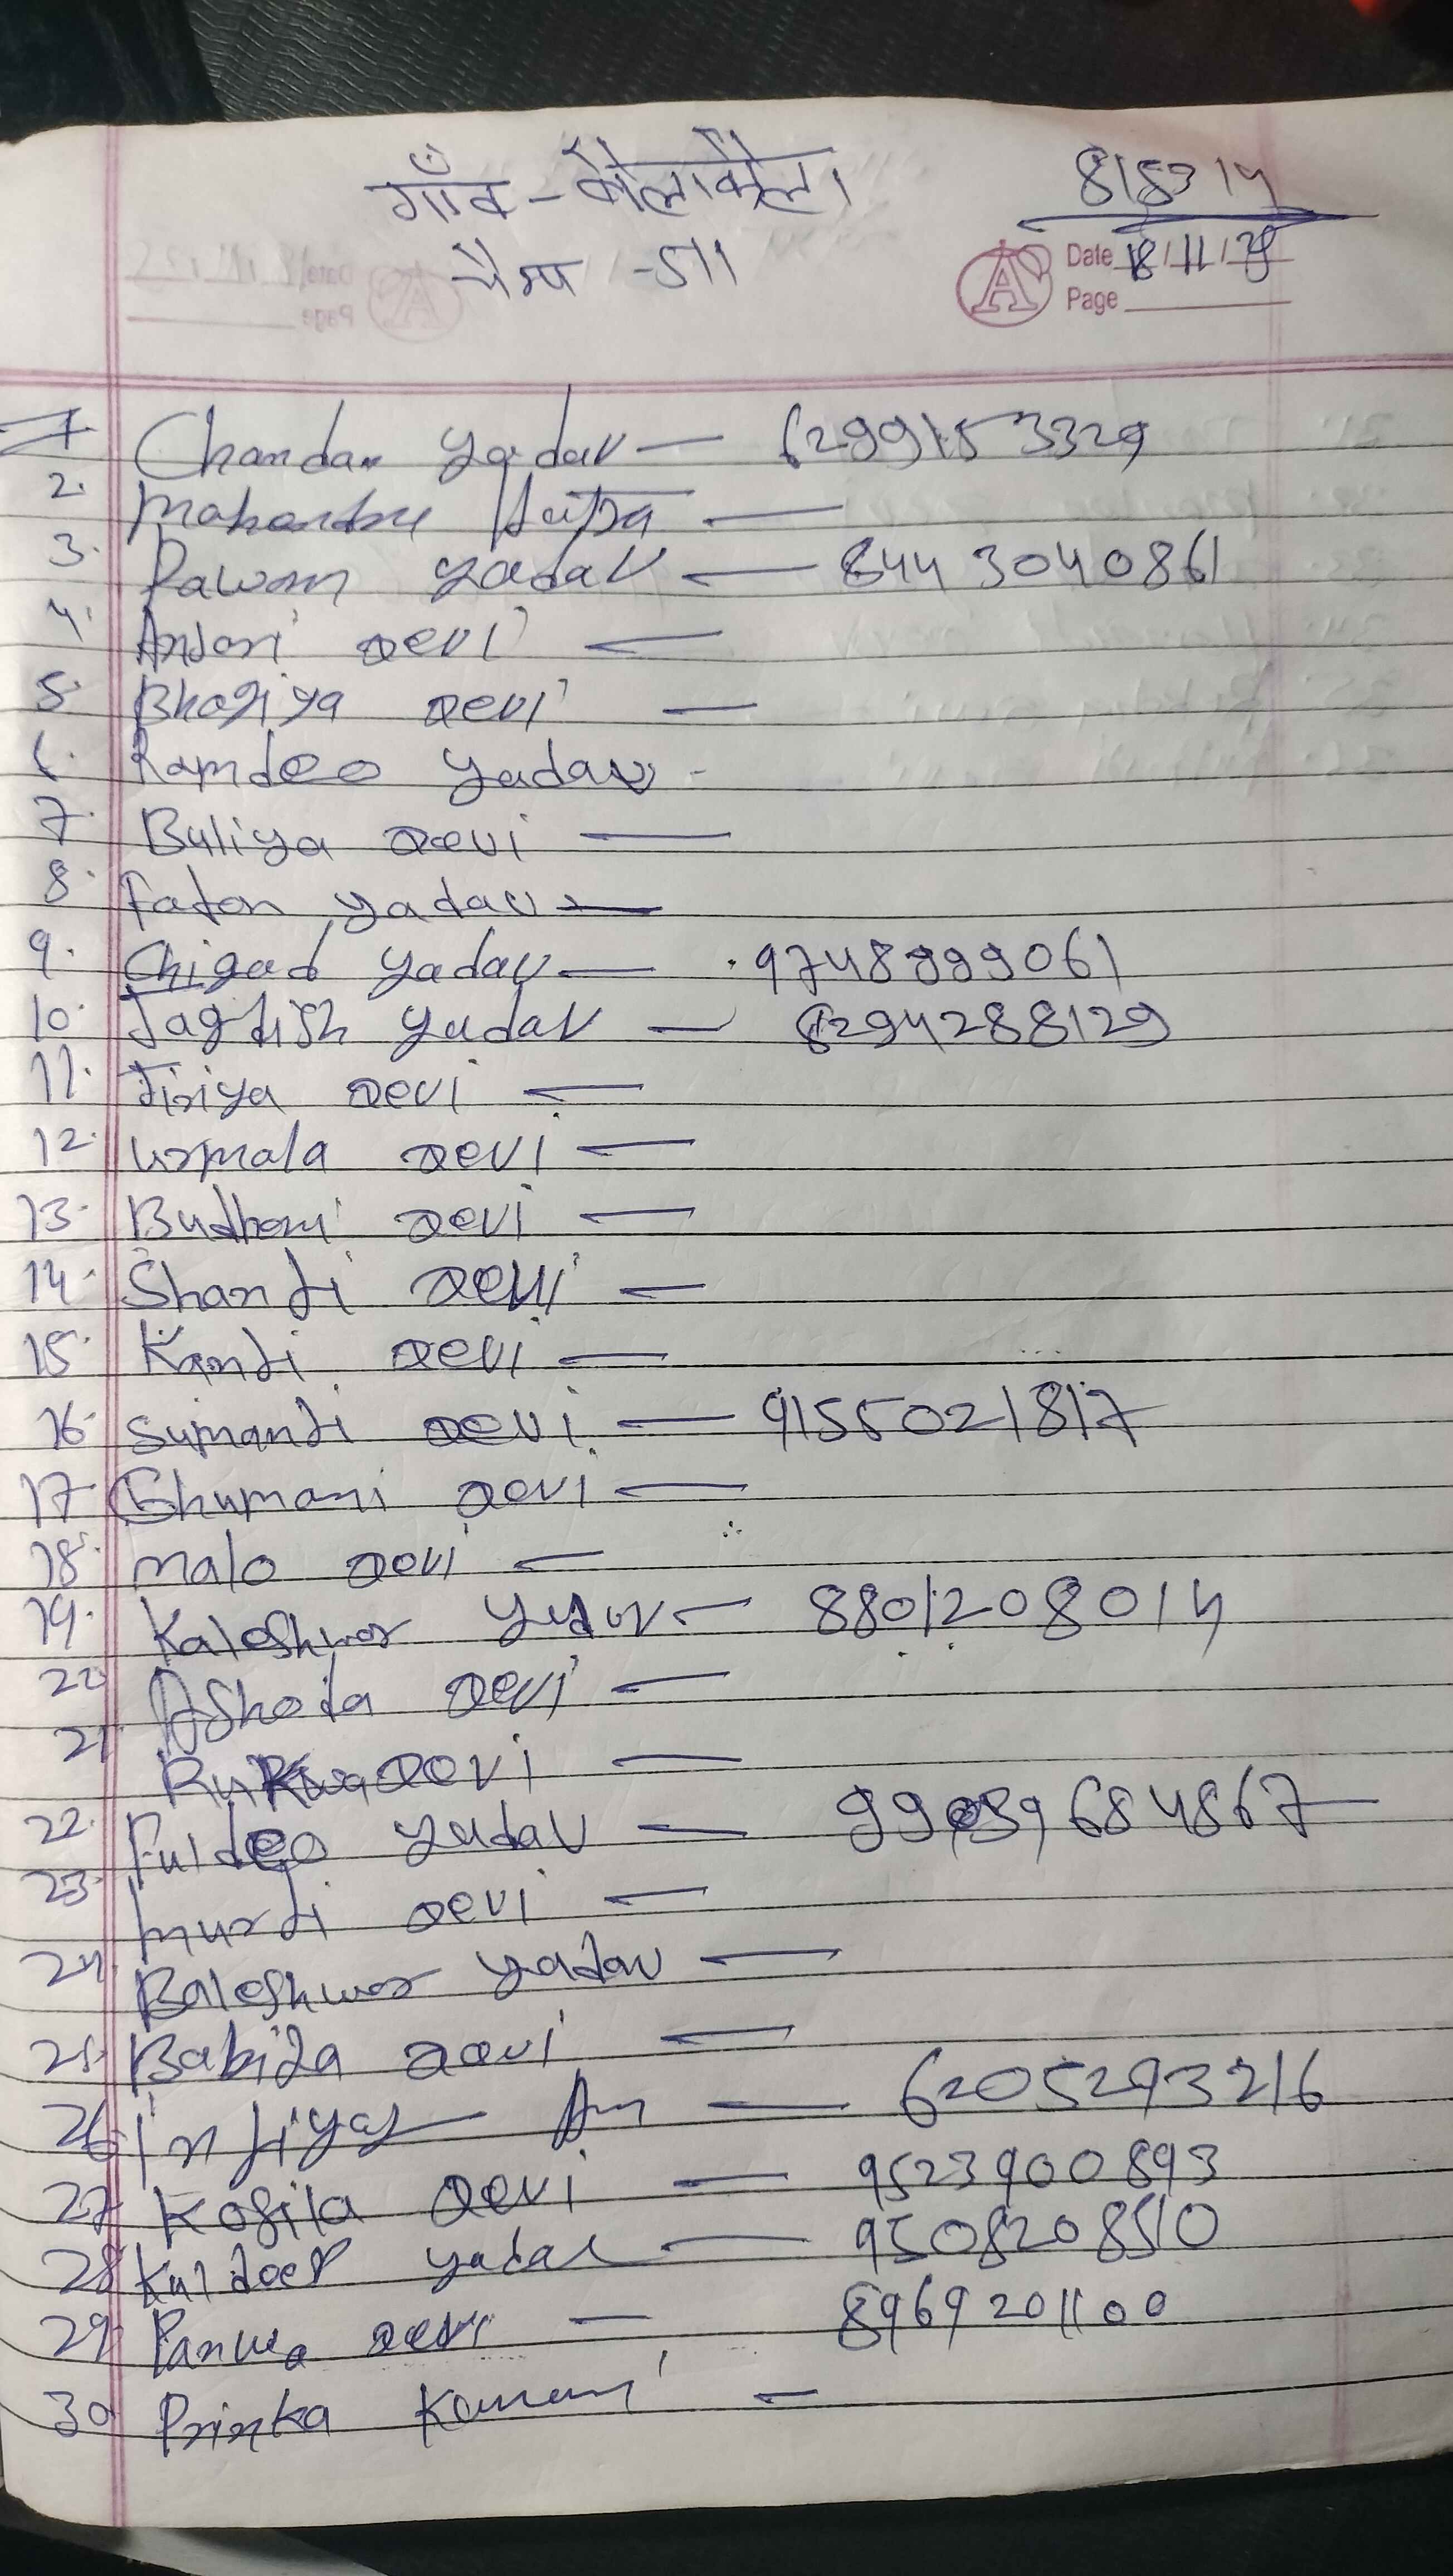 गाँव - कौलाकौला
815314
कैम्प - 511
Date 18/11/28
Page
1. Chandan yadav — 6299153329
2. Mahendra
3. Pawan yadav — 8443040861
4. Anjari Devi —
5. Bhagiya Devi —
6. Ramdeo yadav -
7. Buliya Devi —
8. Faton yadav —
9. Chigad yadav — 9748999061
10. Jagdish yadav — 8294288129
11. Jiriya Devi —
12. Urmala Devi —
13. Budhani Devi —
14. Shanti Devi —
15. Kanti Devi —
16. Sumanti Devi — 9155021817
17. Ghumani Devi —
18. Malo Devi —
19. Kaleshwar yadav — 8801208014
20. Ashoda Devi —
21. Devi —
22. Fuldeo yadav —
23. Murti Devi —
24. Baleshwar yadav —
25. Babita Devi —
26. — 6205293216
27. Kosila Devi — 9523900893
28. Kuldeep yadav — 9508208510
29. Panwa Devi — 8969201100
30. Prinka Kumari —